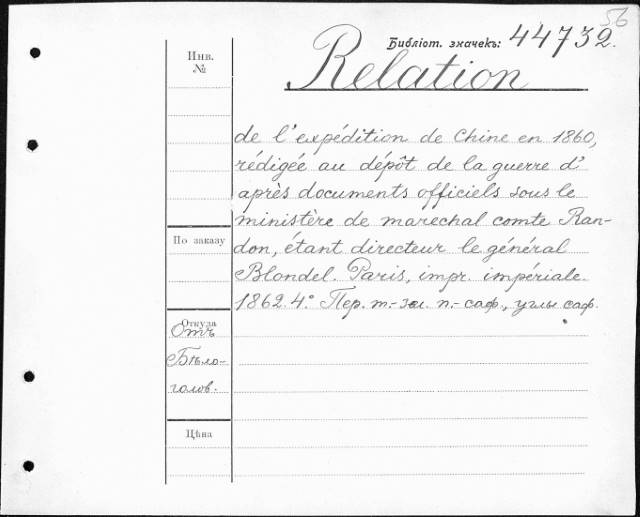 56
Библіот. значекъ: 44732.
Инв.
№
Relation
de l'expédition de Chine en 1860,
rédigée au dépôt de la guerre d'
après documents officiels sous le
ministère de marechal comte Ran-
don, étant directeur le général
Blondel. Paris, impr. impériale.
1862. 4.° Пер. т.- зел. п.- саф., углы саф.
По заказу
Откуда
Отъ
Бѣло-
голов.
Цѣна